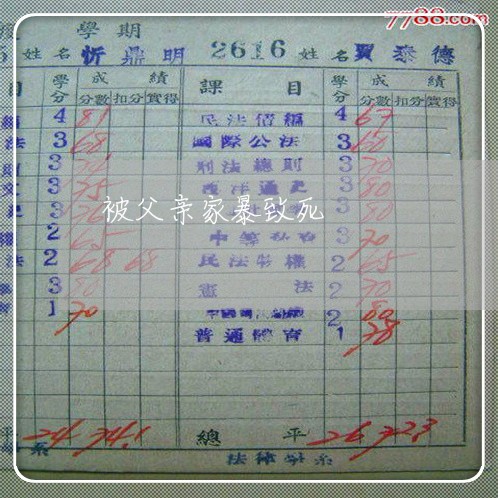 7788.com
學期
5 姓名 忻鼎明 2616 姓名 賈泰德
目 學分 成績 分數 扣分 實得 課目 學分 成績 分數 扣分 實得
4 81 民法債編 4 67
法 3 68 國際公法 3 60
3 刑法總則 3 70
3 75 3 80
被父亲家暴致死
3 3 80
2 65 3 70
法 2 68 68 民法物權 2 65
3 80 憲法 2 70
1 70 2 80
普通體育 1 78
平 24 74.1 總平 26 72.3
系 法律學系